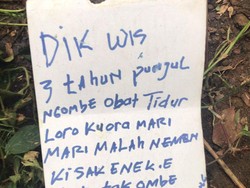 DIK WIS
3 tAHUN puNguL
NgOMBE Obat TIdur
LORO KUORA MARI
MARI MALAH NEMEN
KISAK ENEK.E
OMBE